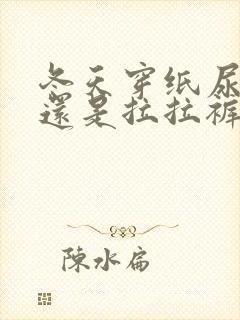 冬天穿纸尿
還是拉拉裤
陳水扁